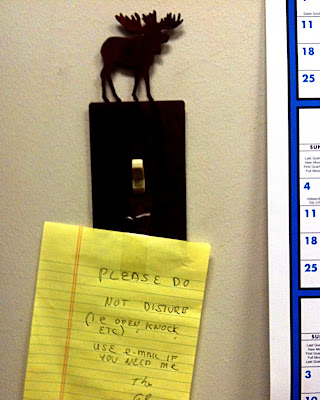 PLEASE DO
NOT DISTURB
(i.e open, knock,
etc)
USE e-mail if
YOU NEED me
Thx
11
18
25
SUN
4
11
18
25
SUN
4